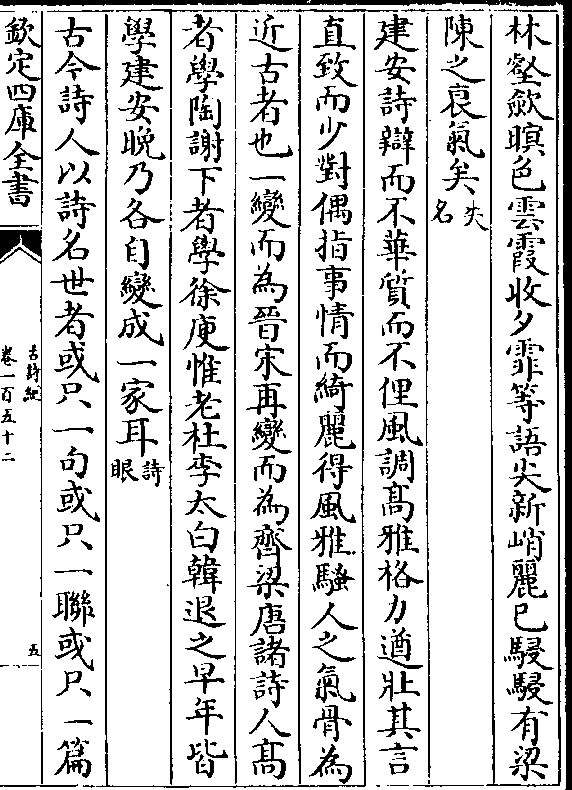 林壑歛暝色雲霞收夕霏等語尖新峭麗已駸駸有梁
陳之衰氣矣失名
建安詩辯而不華質而不俚風調髙雅格力遒壯其言
直致而少對偶指事情而綺麗得風雅騷人之氣骨為
近古者也一變而為晉宋再變而為齊梁唐諸詩人髙
者學陶謝下者學徐庾惟老杜李太白韓退之早年皆
學建安晚乃各自變成一家耳詩眼
古今詩人以詩名世者或只一句或只一聯或只一篇
欽定四庫全書
古詩紀
卷一百五十二
五